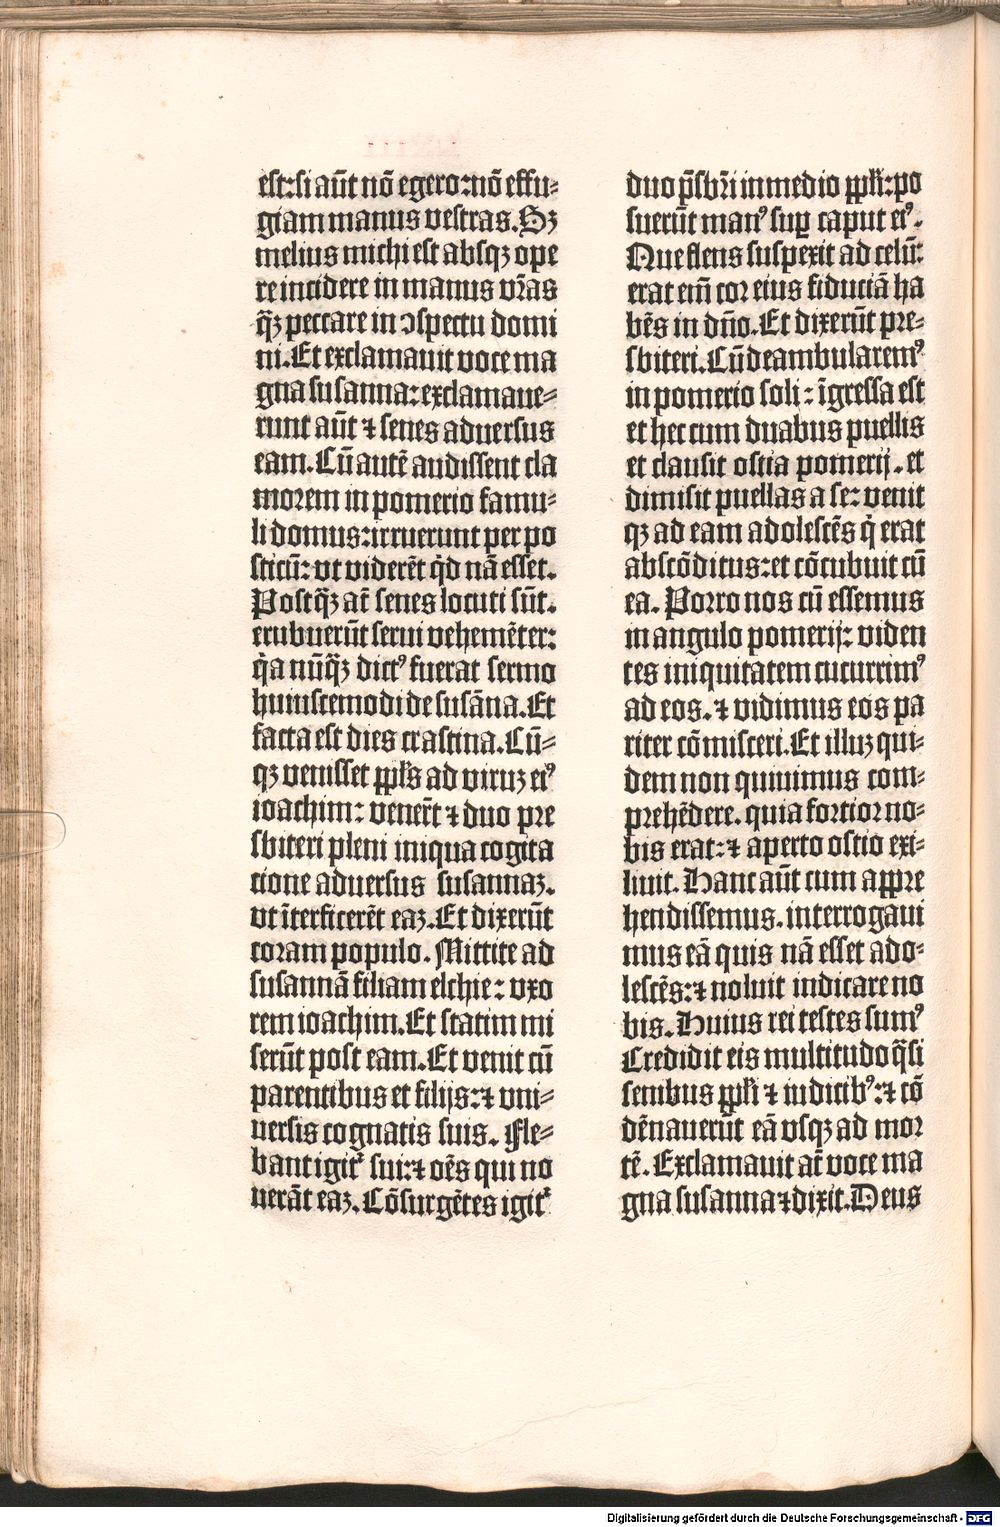 est:si aūt nō egero:nō effu⸗
giam manus vestras. Sꝫ
melius michi est absqꝫ ope
re incidere in manus vr̄as
q̄ꝫ peccare in ↄspectu domi
ni. Et exclamauit voce ma
gna susanna: exclamaue⸗
runt aūt ⁊ senes aduersus
eam. Cū autē audissent cla
morem in pomerio famu⸗
li domus: irruerunt per po
sticū: vt viderēt qͥd nā esset.
Postq̄ꝫ at̄ senes locuti sūt.
erubuerūt serui vehemēter:
qͥa nūq̄ꝫ dictꝰ fuerat sermo
huiuscemodi de susāna. Et
facta est dies crastina. Cū⸗
qꝫ venisset ppl̄s ad viruꝫ eiꝰ
ioachim: venerūt ⁊ duo pre
sbiteri pleni iniqua cogita
tione aduersus susannaꝫ.
vt īterficerēt eaꝫ. Et dixerūt
coram populo. Mittite ad
susannā filiam elchie: vxo
rem ioachim. Et statim mi
serūt post eam. Et venit cū
parentibus et filijs: ⁊ vni⸗
uersis cognatis suis. Fle⸗
bant igitᷣ sui: ⁊ oēs qui no
uerāt eaꝫ. Cōsurgētes igitᷣ
duo p̄sbr̄i in medio ppl̄i: po
suerūt manꝰ sup caput eiꝰ.
Que flens suspexit ad celū:
erat em̄ cor eius fiduciā ha
bēs in dn̄o. Et dixerūt pre⸗
sbiteri. Cū deambularemꝰ
in pomerio soli: īgressa est
et hec cum duabus puellis
et clausit ostia pomerij. et
dimisit puellas a se: venit
qꝫ ad eam adolescēs qͥ erat
abscōditus: et cōcubuit cū
ea. Porro nos cū essemus
in angulo pomerij: viden
tes iniquitatem cucurrimꝰ
ad eos. ⁊ vidimus eos pa
riter cōmisceri. Et illuꝫ qui⸗
dem non quiuimus com⸗
prehēdere. quia fortior no⸗
bis erat: ⁊ aperto ostio exi⸗
liuit. Hanc aūt cum appre
hendissemus. interrogaui
mus eā quis nā esset ado⸗
lescēs: ⁊ noluit indicare no
bis. Huius rei testes sumꝰ
Credidit eis multitudo q̄si
senibus ppl̄i ⁊ iudicibꝰ: ⁊ cō
dēnauerūt eā vsqꝫ ad mor
tē. Exclamauit at̄ voce ma
gna susanna ⁊ dixit. Deus
Digitalisierung gefördert durch die Deutsche Forschungsgemeinschaft - DFG